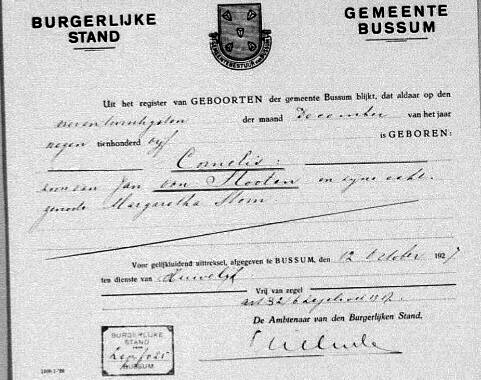 BURGERLIJKE
STAND
GEMEENTE
BUSSUM
GEMEENTEBESTUUR VAN BUSSUM
Uit het register van GEBOORTEN der gemeente Bussum blijkt, dat aldaar op den
der maand December van het jaar
negen tienhonderd vijf is GEBOREN:
Cornelis:
zoon van Jan van Slooten en zijne echt-
genoote Margaretha Stom
Voor gelijkluidend uittreksel, afgegeven te BUSSUM, den 12 October 1927
ten dienste van Huwelijk
Vrij van zegel
art 32 6 Zegelwet 1917.
De Ambtenaar van den Burgerlijken Stand,
BURGERLIJKE
STAND
BUSSUM